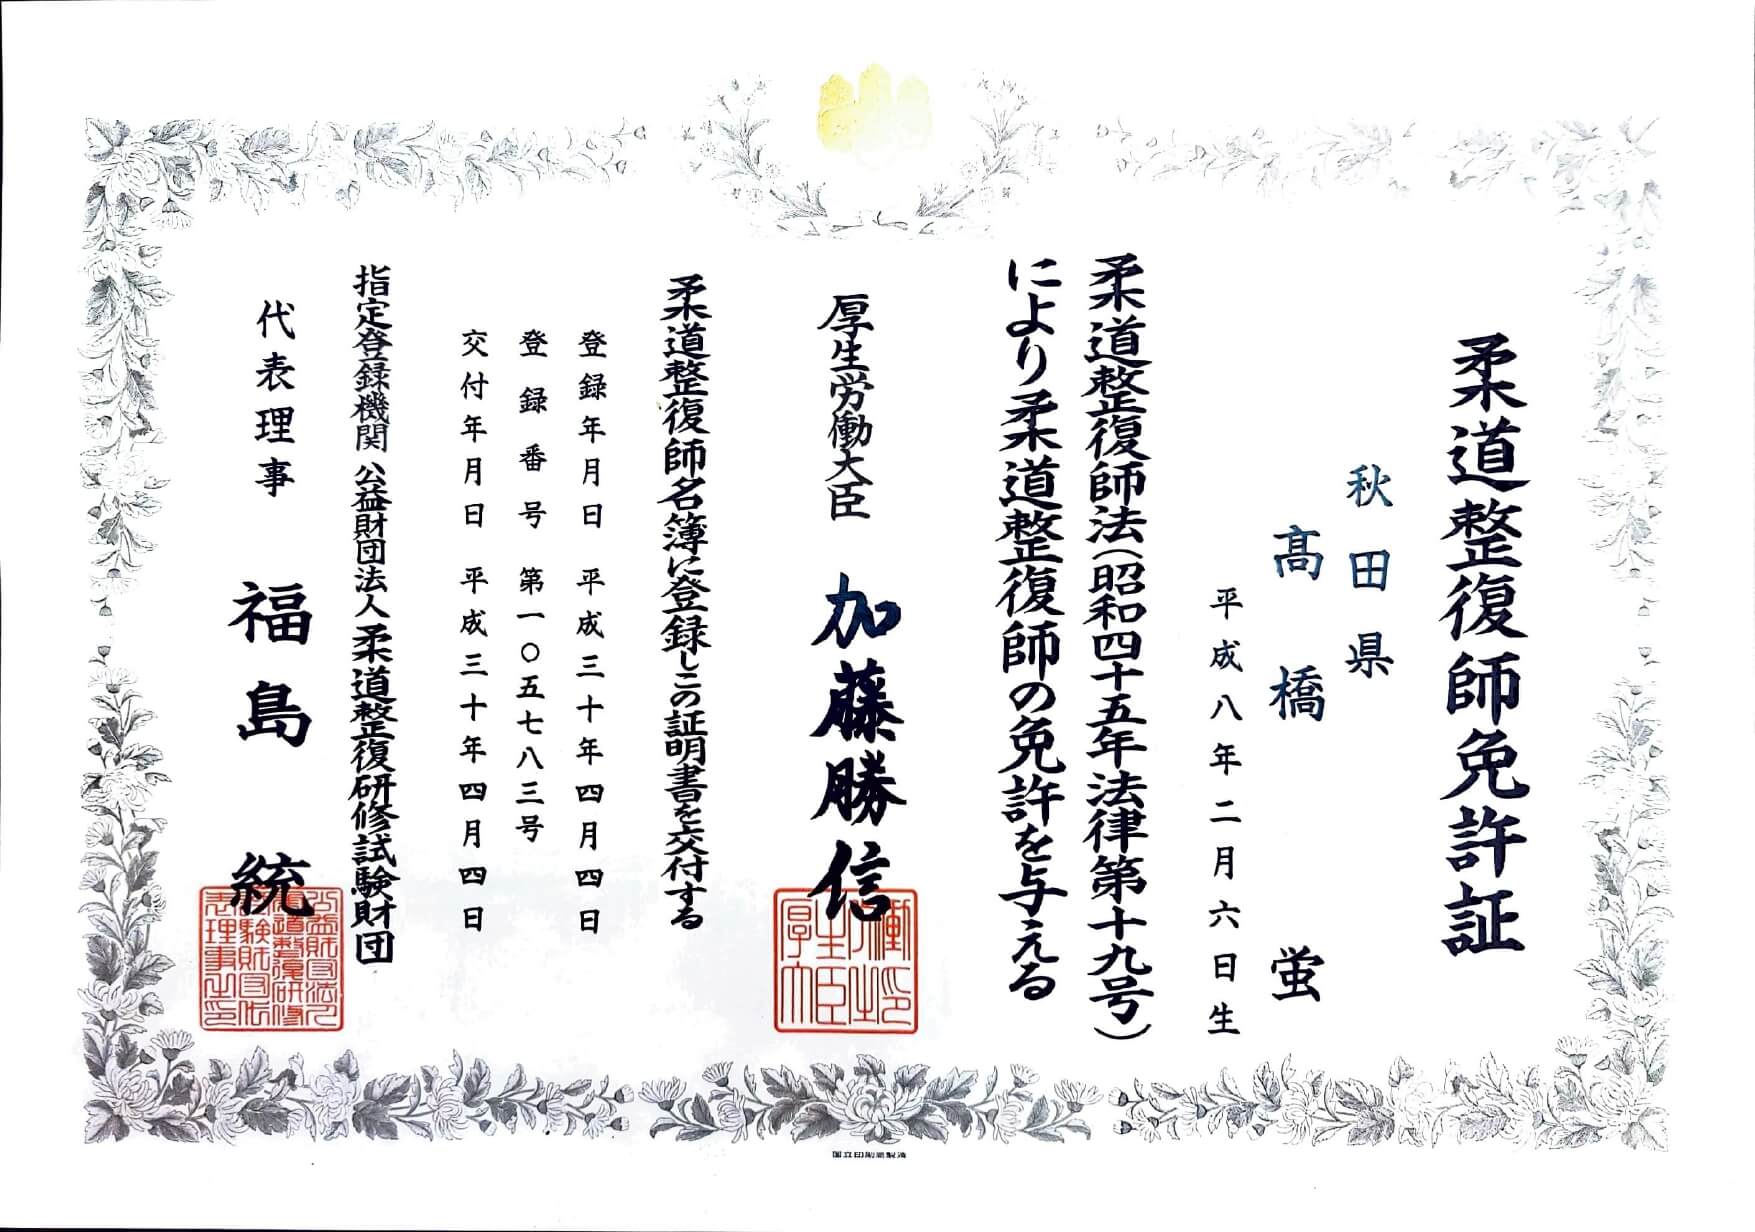 柔道整復師免許証
秋田県
髙橋 蛍
平成八年二月六日生
柔道整復師法（昭和四十五年法律第十九号）
により柔道整復師の免許を与える
厚生労働大臣 加藤勝信
柔道整復師名簿に登録しこの証明書を交付する
登録年月日 平成三十年四月四日
登録番号 第一〇五七八三号
交付年月日 平成三十年四月四日
指定登録機関 公益財団法人柔道整復研修試験財団
代表理事 福島 統
国立印刷局製造